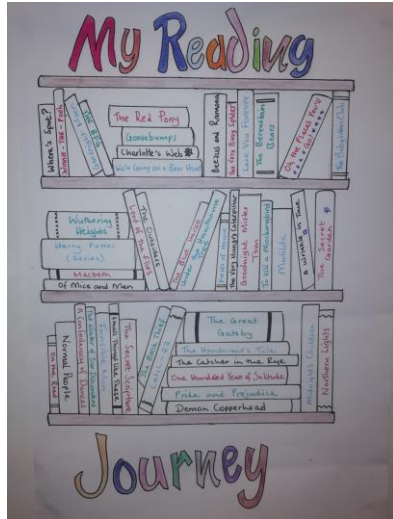 My Reading
Where's Spot?
Winnie-The-Pooh
The BFG
The Red Pony
Goosebumps
Charlotte's Web
We're Going on a Bear Hunt
Beezus and Ramona
The Very Busy Spider
Love You Forever
The Berenstain Bears
Oh the Places You'll Go!
The Babysitters Club
Wuthering Heights
Harry Potter (Series)
Macbeth
Of Mice and Men
The Outsiders
Lord of the Flies
The Book Thief
Under the Hawthorne Tree
The Very Hungry Caterpillar
Goodnight Mister Tom
To Kill a Mockingbird
Matilda
A Wrinkle in Time
The Secret Garden
On the Road
Normal People
A Confederacy of Dunces
Invisible Man
Small Things Like These
The Secret Scripture
Catch-22
The Great Gatsby
The Handmaid's Tale
The Catcher in the Rye
One Hundred Years of Solitude
Pride and Prejudice
Demon Copperhead
Midnight's Children
Northern Lights
Journey